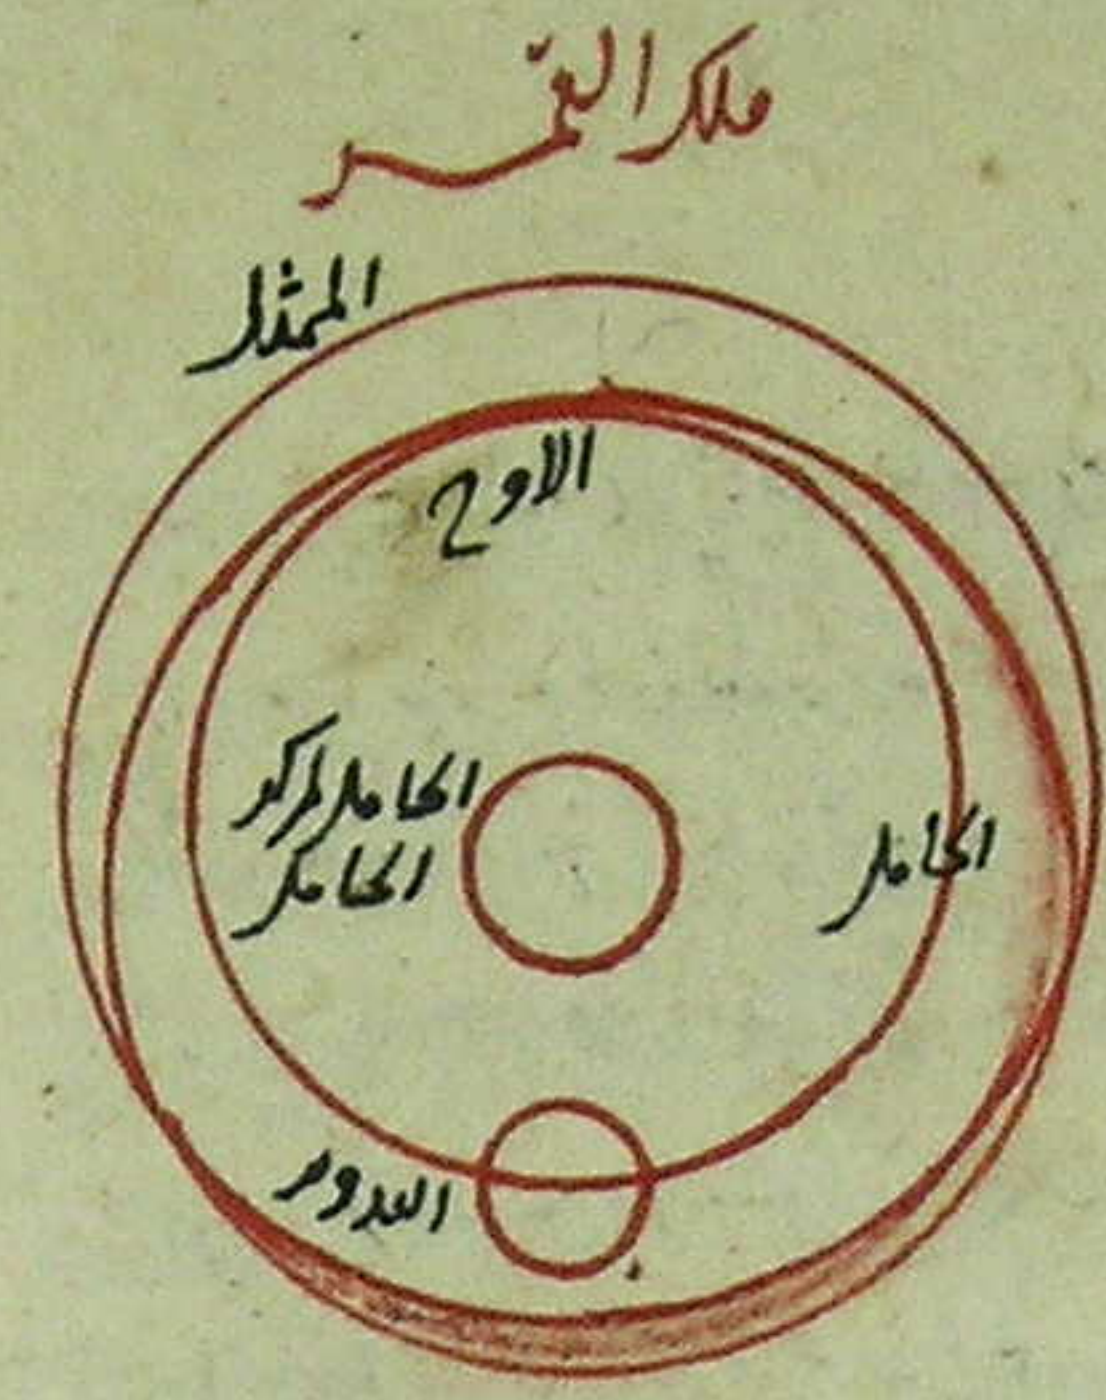 فلك القمر
الممثل
الاوج
الحامل لمركز
الحامل
الحامل
التدوير